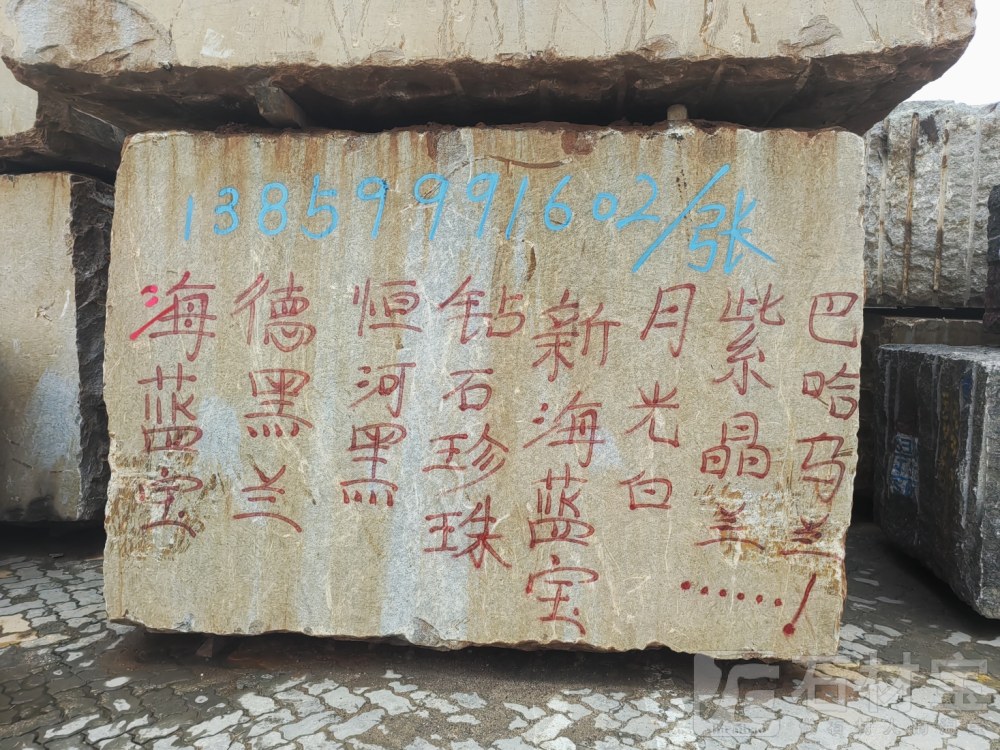 13859991602/张
海蓝宝
德黑兰
恒河黑
钻石珍珠
新海蓝宝
月光白
紫晶兰
巴哈马兰
......!
石材宝